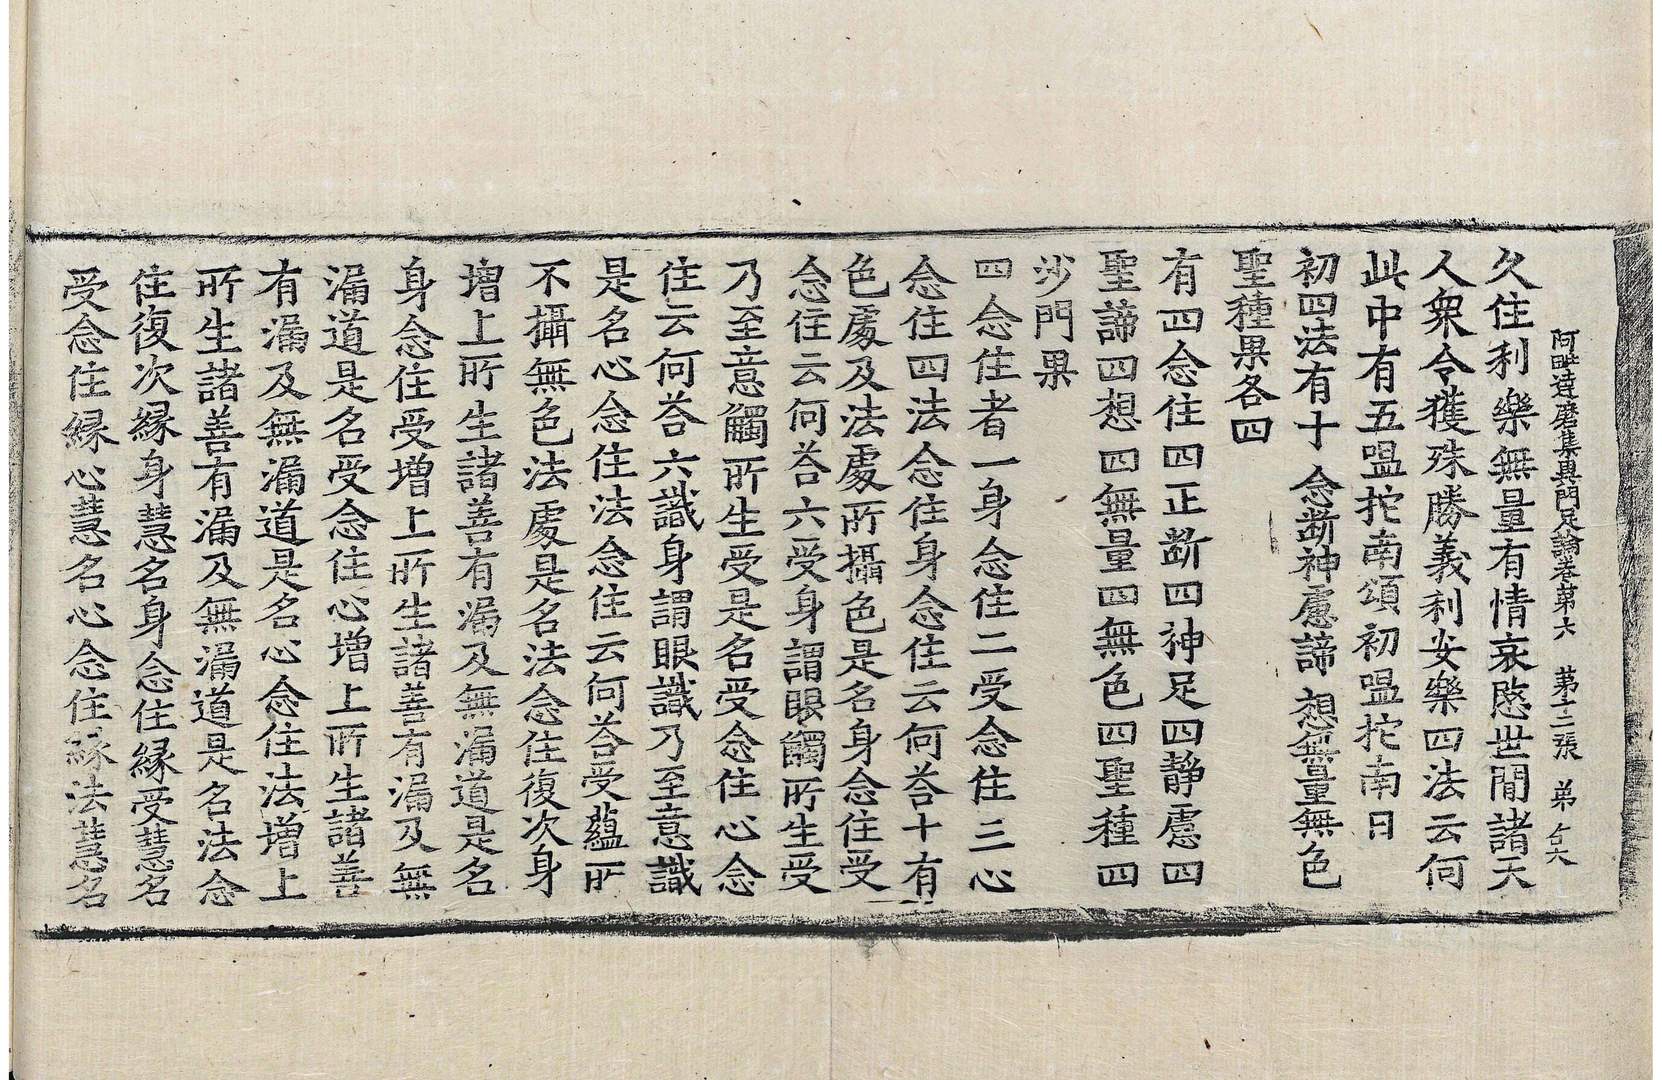 阿毗達磨集異門足論卷第六 第十二張 弟
久住利樂無量有情哀愍世間諸天
人衆令獲殊勝義利安樂四法云何
此中有五嗢拕南頌初嗢拕南曰
初四法有十 念斷神慮諦 想無量無色
聖種果各四
有四念住四正斷四神足四靜慮四
聖諦四想四無量四無色四聖種四
沙門果
四念住者一身念住二受念住三心
念住四法念住身念住云何荅十有
色處及法處所攝色是名身念住受
念住云何荅六受身謂眼觸所生受
乃至意觸所生受是名受念住心念
住云何荅六識身謂眼識乃至意識
是名心念住法念住云何荅受蘊所
不攝無色法處是名法念住復次身
增上所生諸善有漏及無漏道是名
身念住受增上所生諸善有漏及無
漏道是名受念住心增上所生諸善
有漏及無漏道是名心念住法增上
所生諸善有漏及無漏道是名法念
住復次緣身慧名身念住緣受慧名
受念住緣心慧名心念住緣法慧名